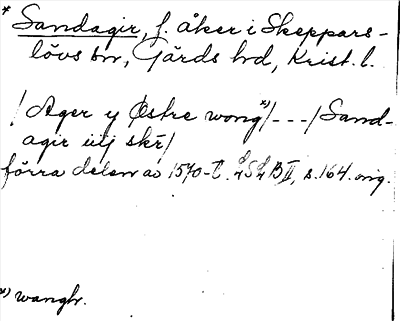 * Sandagir, f. åker i Skeppars-
lövs sn, Gärds hd, Krist. l.
/ Ager y Østre wong *)/---/ Sand-
agir iiij skr/
förra delen av 1570-t. LSLB II, s. 164. orig.
*) wanghr.